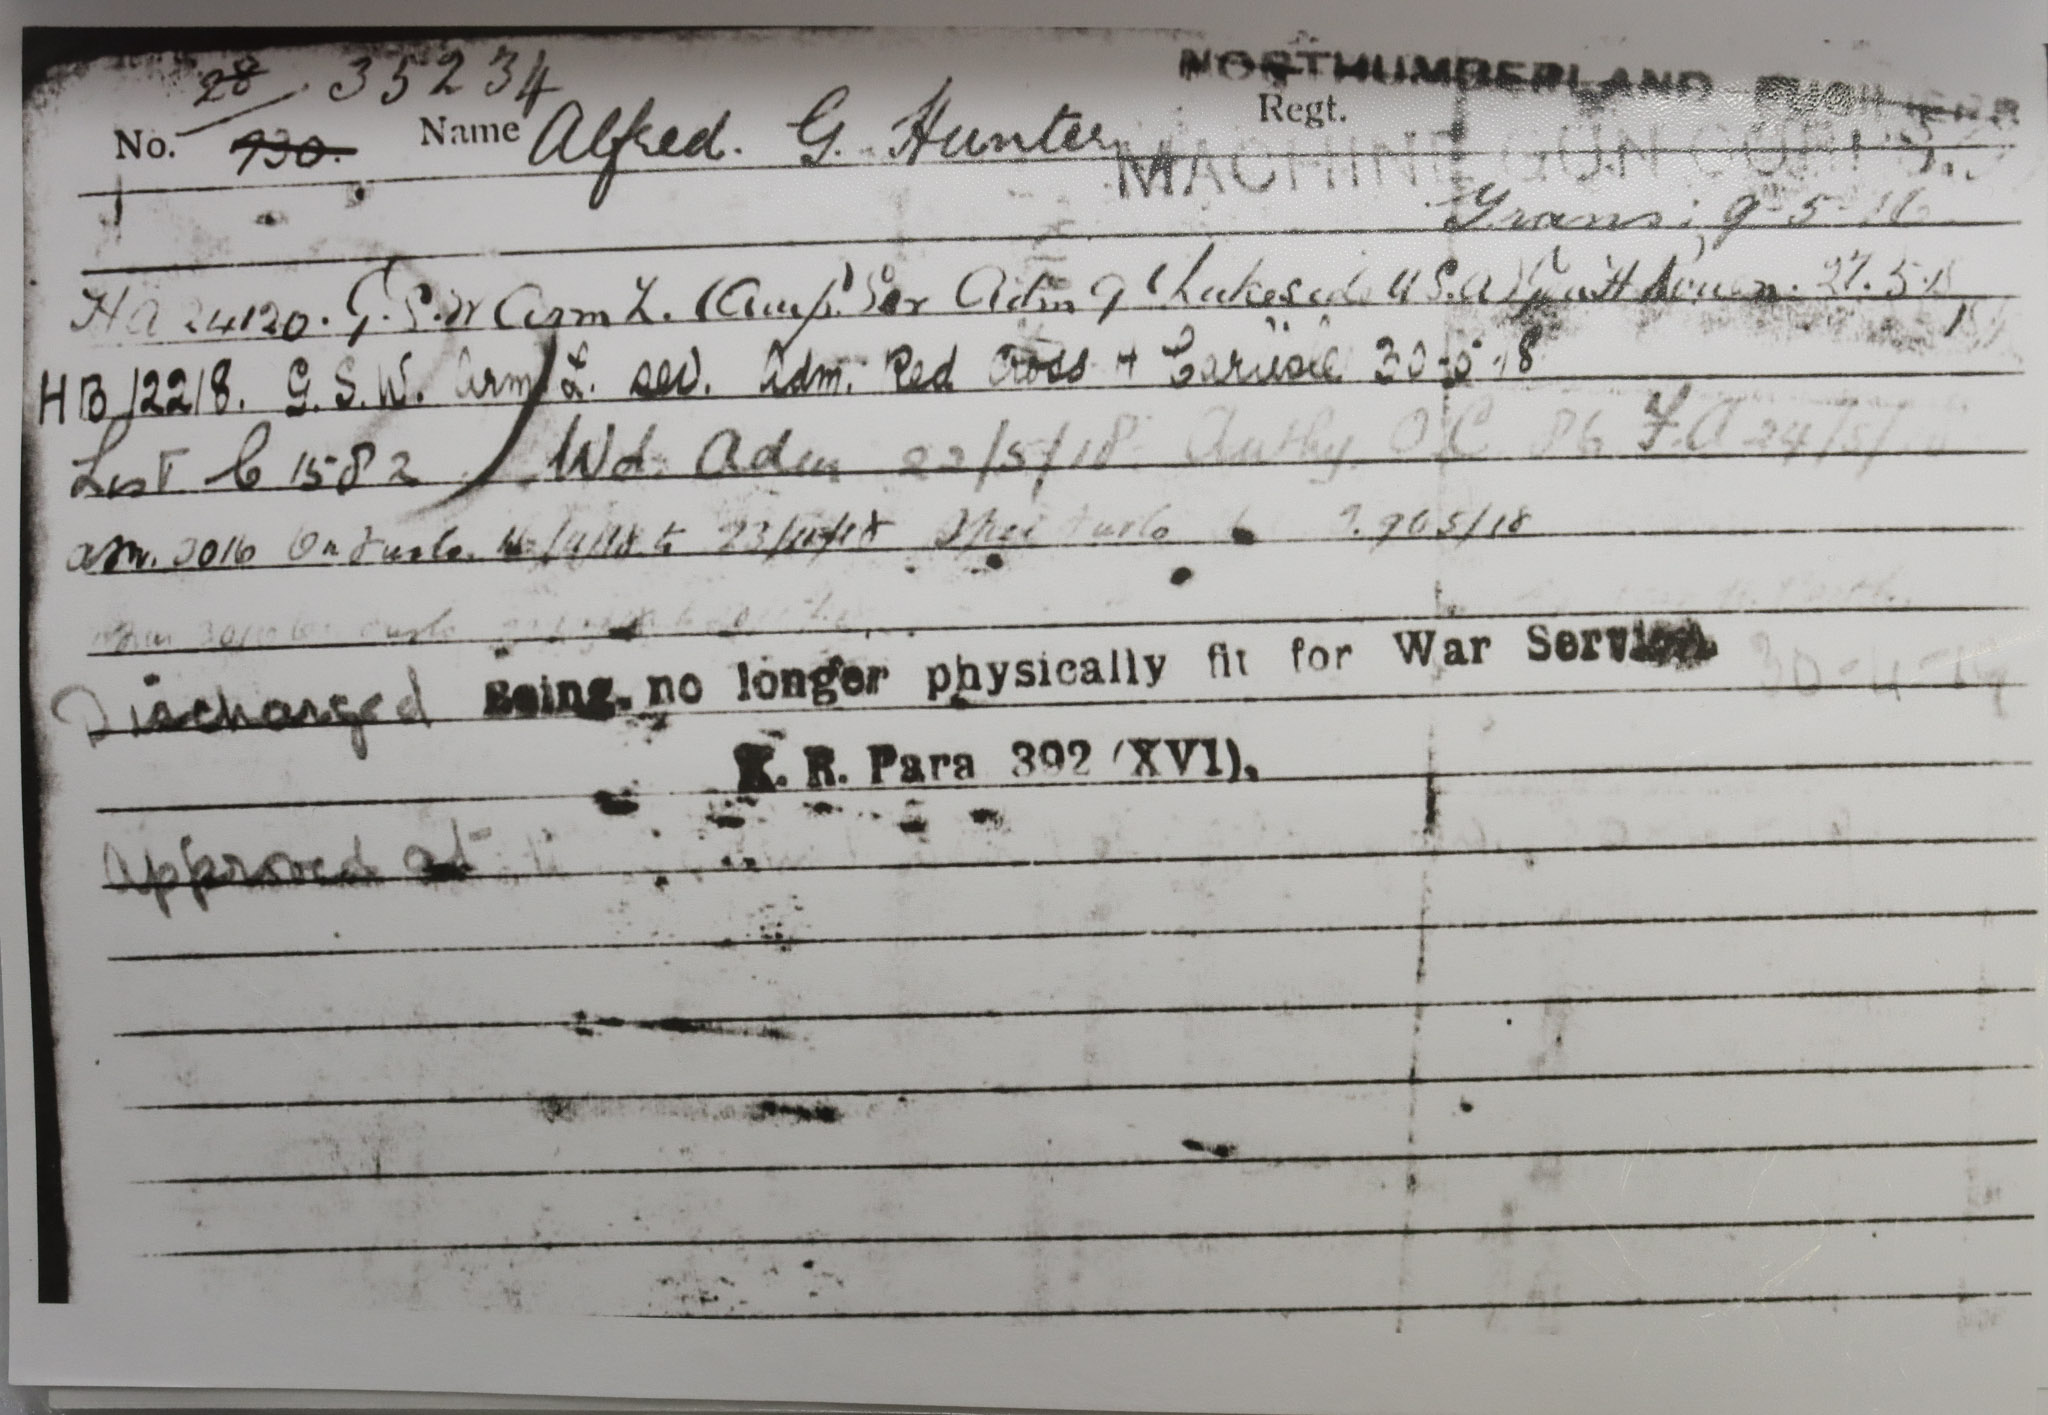 28/930. 35234
No. Name Alfred. G. Hunter Regt. NORTHUMBERLAND FUSILIERS
MACHINE GUN CORPS.
Trans: 9-5-16
HA 24120. G.S.W Arm L. (Amp) Sev Adm 9 (Lakeside U.S.A) Gen H Rouen. 27.5.18
HB 12218. G.S.W. Arm L. sev. Adm. Red Cross H Carlisle 30-5-18
List C 1582 Wd. Adm 22/5/18 Authy. O C 86 F.A 24/5/
On Furlo. to 23/ /18 Furlo
Furlo
Discharged Being no longer physically fit for War Service. 30-4-19
K. R. Para 392 (XVI).
Approved at